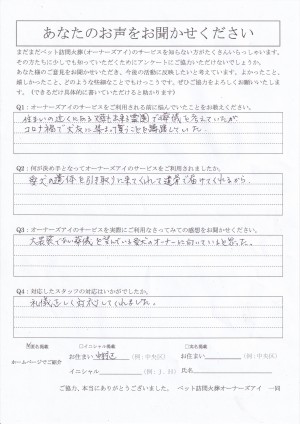 あなたのお声をお聞かせください
まだまだペット訪問火葬(オーナーズアイ)のサービスを知らない方がたくさんいらっしゃいます。
その方たちに少しでも知っていただくためにアンケートにご協力いただけないでしょうか。
あなた様のご意見をお聞かせいただき、今後の活動に反映したいと考えています。よかったこと、
嬉しかったこと、どのような些細なことでもけっこうです。ぜひご協力をよろしくお願いいたします。(できるだけ具体的に書いていただけると助かります)
Q1:オーナーズアイのサービスをご利用される前に悩んでいたことをお教えください。
住まいの近くにある 出来る霊園で葬儀を考えていたが
コロナ禍で大 に集まって貰うことを躊躇していた。
Q2:何が決め手となってオーナーズアイのサービスをご利用されましたか。
愛犬の遺体を引き取りに来てくれて遺骨で届けてくれるから。
Q3:オーナーズアイのサービスを実際にご利用なさってみての感想をお聞かせください。
大袈裟でない葬儀を望んでいる愛犬のオーナーに向いていると思った。
Q4:対応したスタッフの対応はいかがでしたか。
礼儀正しく対応してくれました。
匿名掲載 □イニシャル掲載 □実名掲載
ホームページでご紹介
お住まい (例:中央区) お住まい (例:中央区)
イニシャル (例:J.H) 氏名
ご協力、本当にありがとうございました。 ペット訪問火葬オーナーズアイ 一同